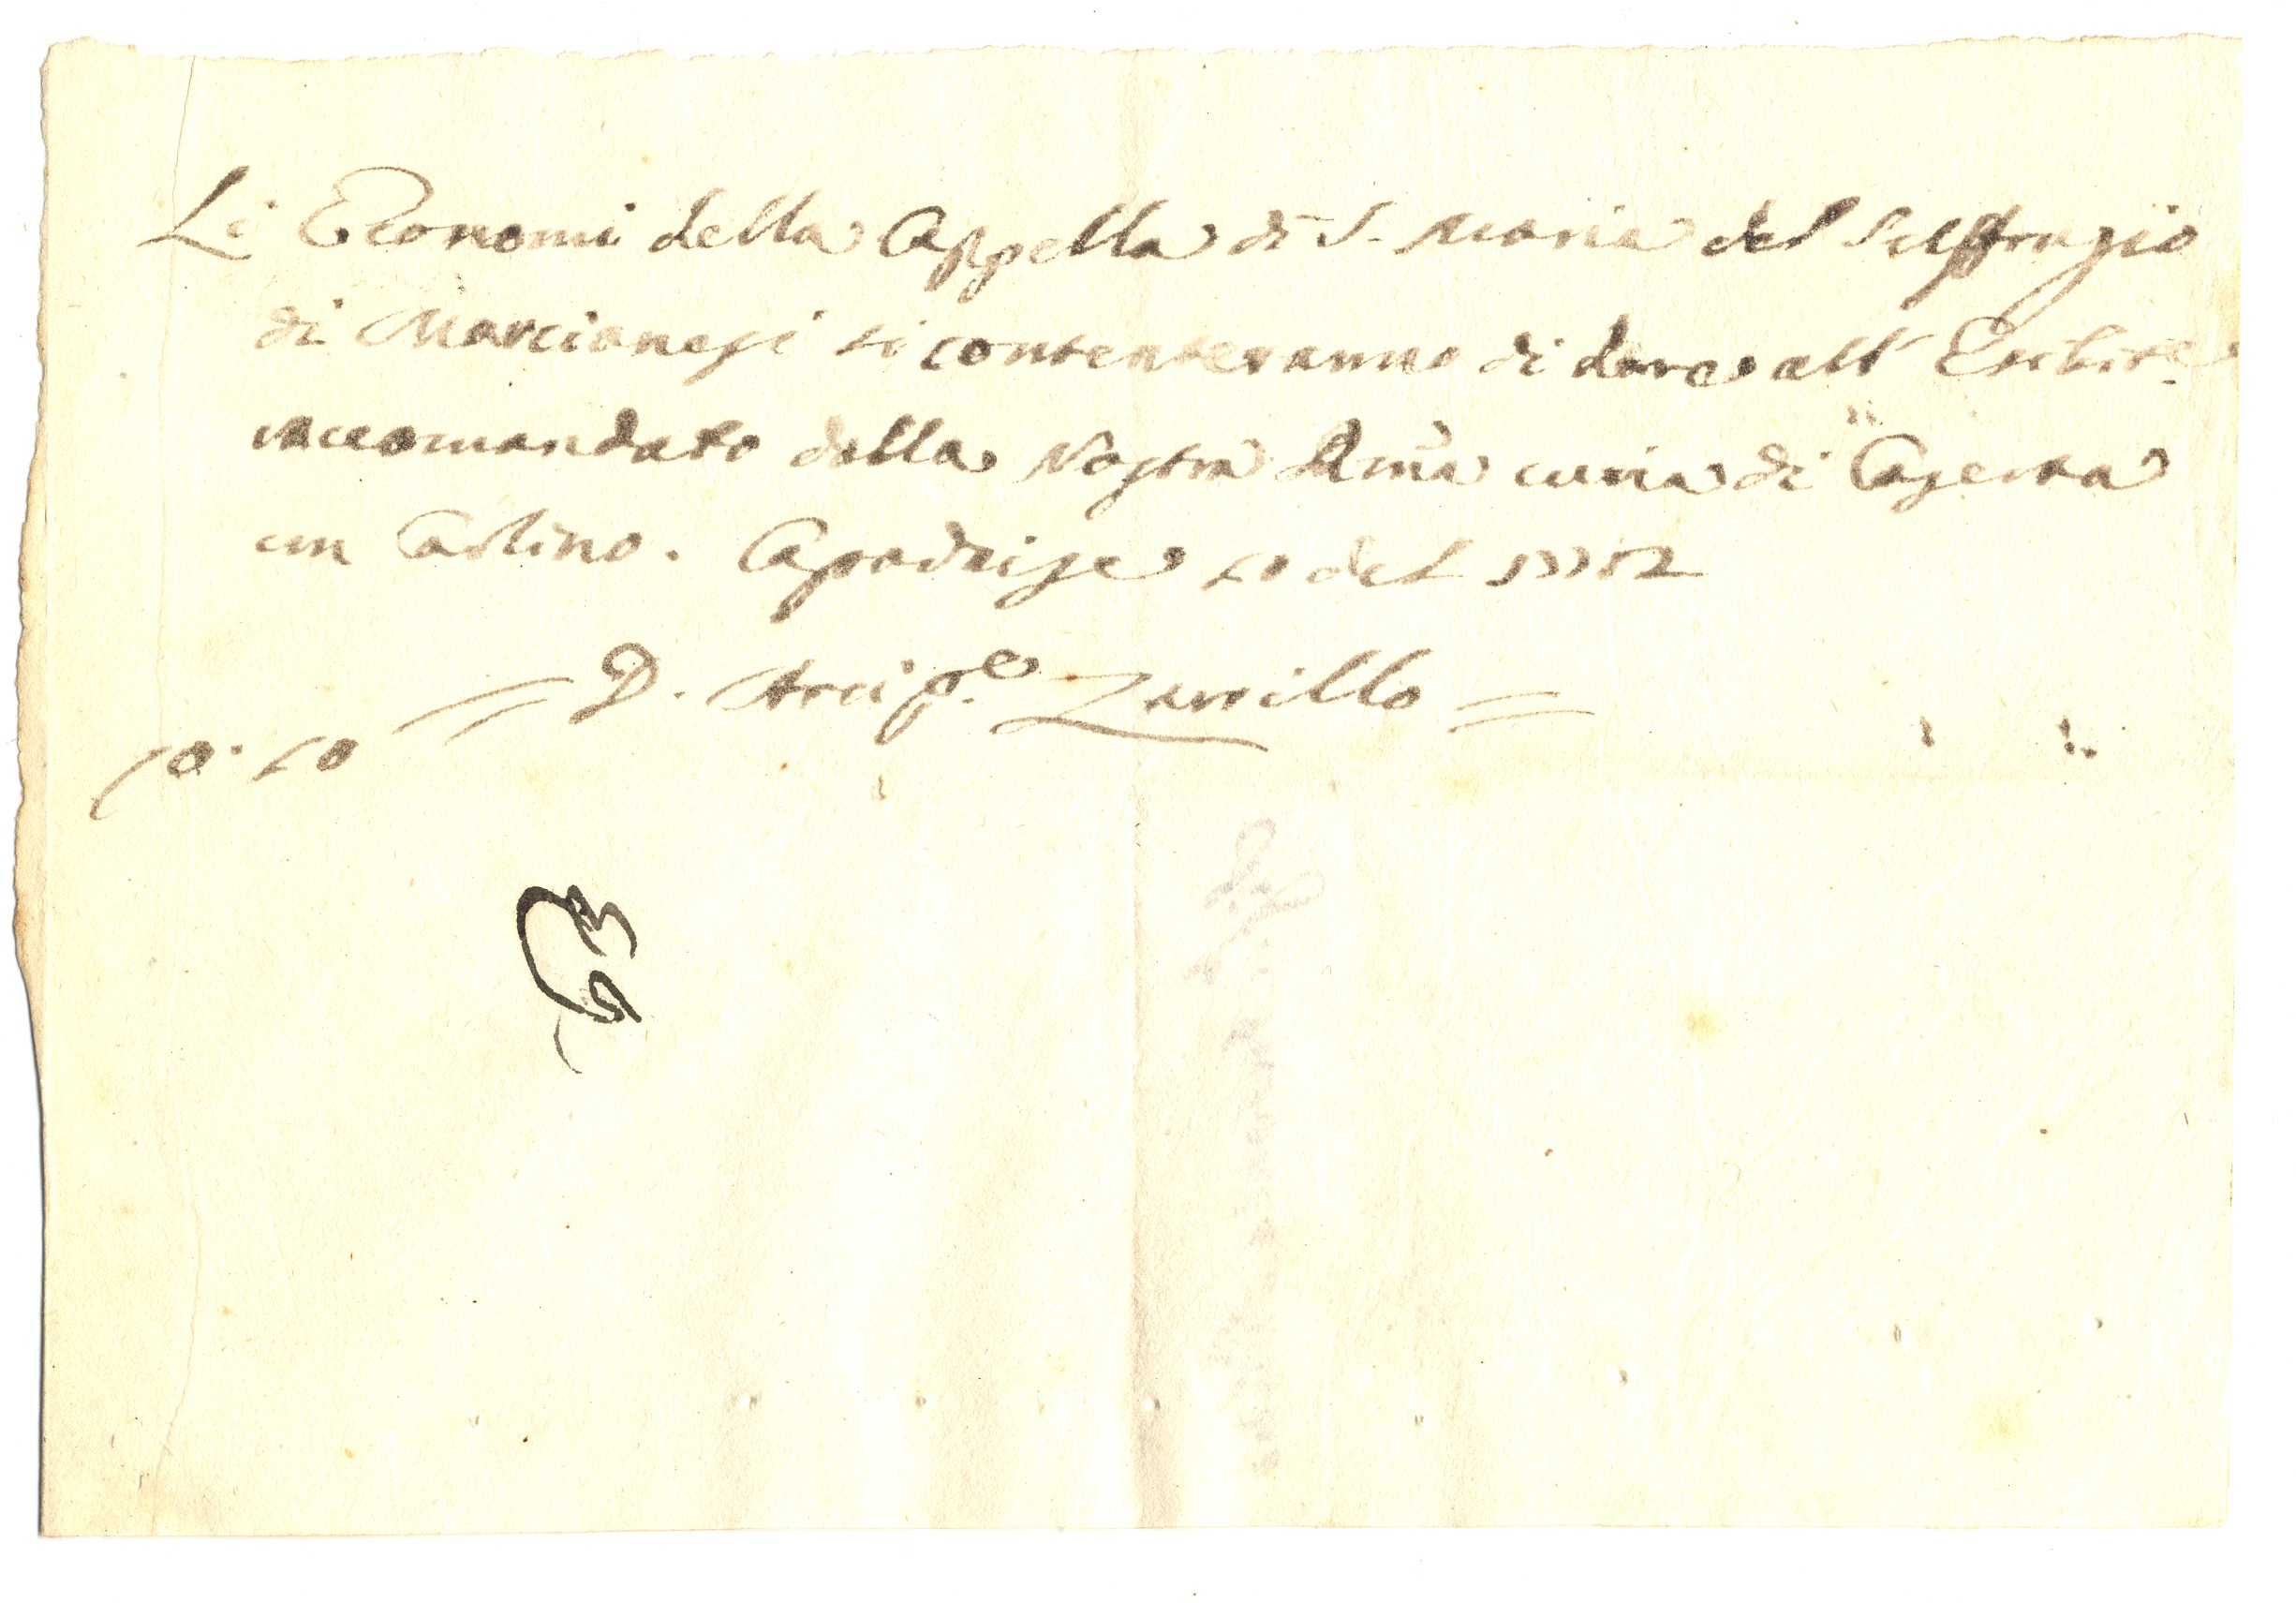 Li Economi della Cappella di S. Maria del Suffragio
di Marcianesi si contenteranno di dare all' Esibite
raccomandato dalla Nostra Rma curia di Caserta
un Carlino. Capodrise 10 del 1752
= D. Arcip.e Zarrillo =
0.10
63